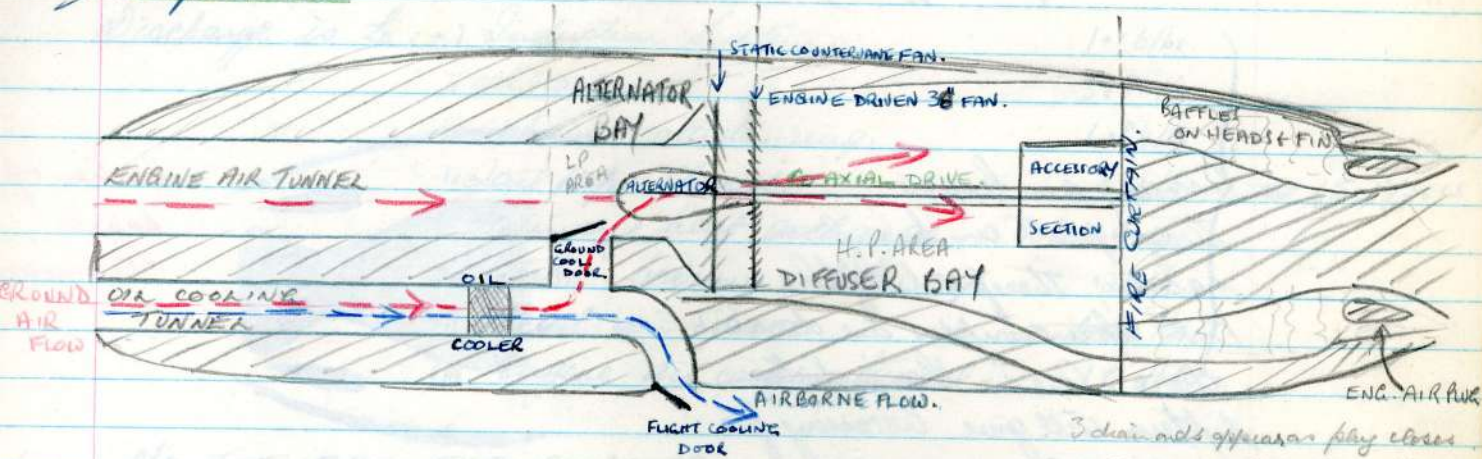 STATIC COUNTERVANE FAN.
ALTERNATOR
BAY
ENGINE DRIVEN 36" FAN.
BAFFLES
ON HEADS & FIN
ENGINE AIR TUNNEL
LP
AREA
ALTERNATOR
AXIAL DRIVE.
ACCESSORY
SECTION
FIRE CURTAIN.
GROUND
COOL
DOOR
H.P. AREA
DIFFUSER BAY
GROUND
AIR
FLOW
OIL COOLING
TUNNEL
OIL
COOLER
AIRBORNE FLOW.
FLIGHT COOLING
DOOR
ENG. AIR PLUG
3 diamonds appear as plug closes